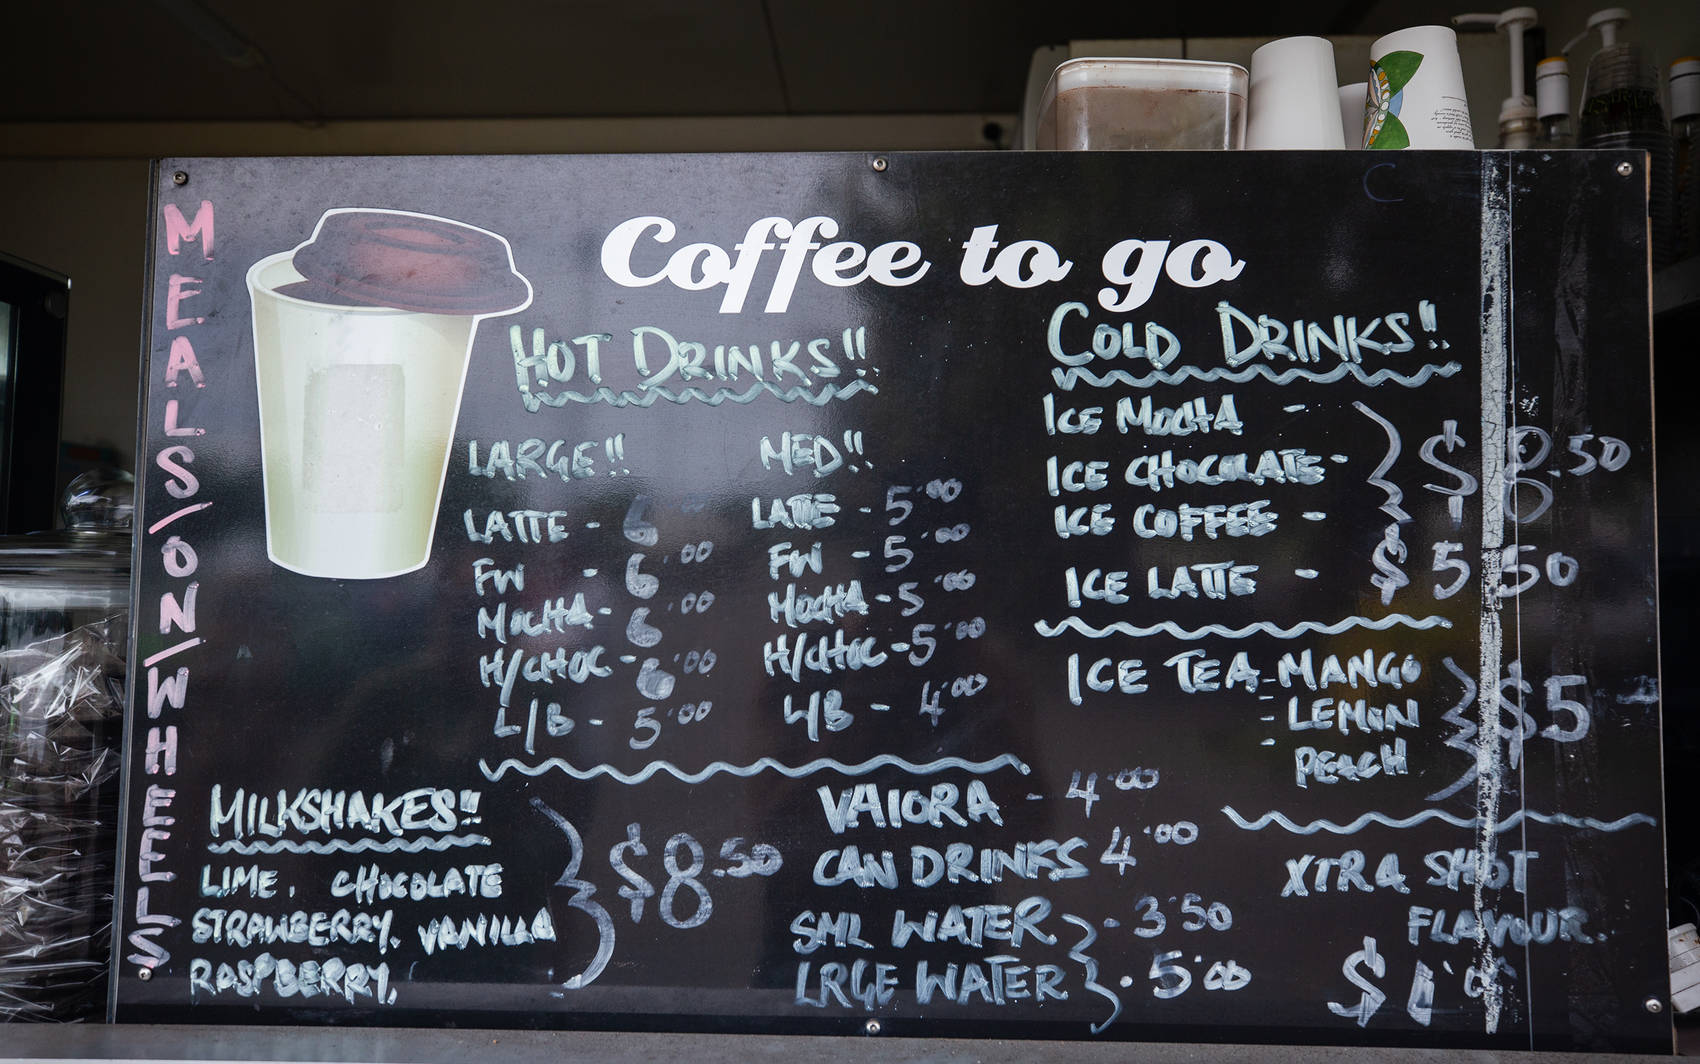 MEALS/ON/WHEELS
Coffee to go
HOT DRINKS!!
LARGE!!
LATTE - 6.00
FW - 6.00
MOCHA - 6.00
H/CHOC - 6.00
L/B - 5.00
MED!!
LATTE - 5.00
FW - 5.00
MOCHA - 5.00
H/CHOC - 5.00
L/B - 4.00
COLD DRINKS!!
ICE MOCHA -
ICE CHOCOLATE -
ICE COFFEE -
$8.50
ICE LATTE - $5.50
ICE TEA - MANGO
- LEMON
- PEACH
$5
MILKSHAKES!!
LIME. CHOCOLATE
STRAWBERRY. VANILLA
RASPBERRY,
$8.50
VAIORA - 4.00
CAN DRINKS 4.00
SML WATER - 3.50
LRGE WATER - 5.00
XTRA SHOT
FLAVOUR.
$1.00